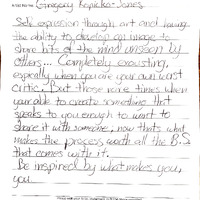 Gregory Kopicko-Jones
Self expression through art and having
the ability to develop an image to
share bits of the mind unseen by
others... Completely exausting,
espically when you are your own worst
critic. But those rare times when
your able to create something that
speaks to you enough to want to
share it with someone, now that's what
makes the process worth all the B.S
that comes with it.
Be inspired by what makes you,
you